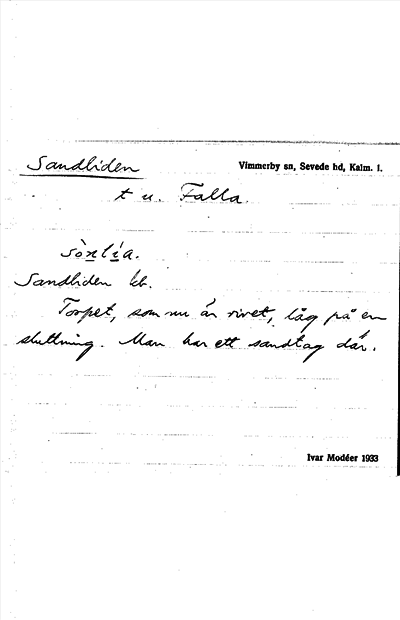 Sandliden
Vimmerby sn, Sevede hd, Kalm. l.
t u. Falla.
sònlía.
Sandliden kb.
Torpet, som nu är rivet, låg på en
sluttning. Man har ett sandtag där.
Ivar Modéer 1933